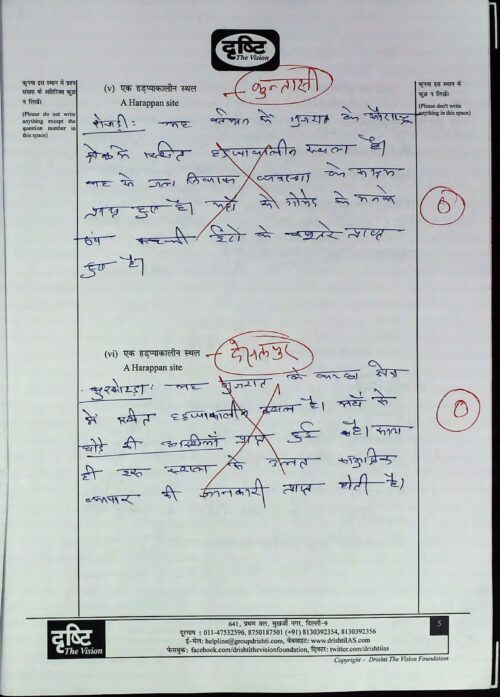 दृष्टि
The Vision
कृपया इस स्थान में प्रश्न
संख्या के अतिरिक्त कुछ
न लिखें।
(Please do not write
anything except the
question number in
this space)
(v) एक हड़प्पाकालीन स्थल
A Harappan site
कुन्तासी
कृपया इस स्थान में
कुछ न लिखें।
(Please don't write
anything in this space)
रोजड़ी: यह वर्तमान के गुजरात के सौराष्ट्र
क्षेत्र में स्थित हड़प्पाकालीन स्थल है।
यह से जल निकास व्यवस्था के
प्राप्त हुए है। यहाँ से गोमेद के मनके
एवं कच्ची ईंटों के चबूतरे प्राप्त
हुए है।
0
(vi) एक हड़प्पाकालीन स्थल
A Harappan site
देसलपुर
सुरकोटड़ा: यह गुजरात के कच्छ क्षेत्र
में स्थित हड़प्पाकालीन स्थल है। यहाँ से
घोड़े की अस्थियाँ प्राप्त हुई है। साथ
ही इस स्थल से उन्नत सामुद्रिक
व्यापार की जानकारी प्राप्त होती है।
0
641, प्रथम तल, मुखर्जी नगर, दिल्ली-9
दूरभाष : 011-47532596, 8750187501 (+91) 8130392354, 8130392356
ई-मेल: helpline@groupdrishti.com, वेबसाइट: www.drishtiIAS.com
फेसबुक: facebook.com/drishtithevisionfoundation, ट्विटर: twitter.com/drishtiias
5
दृष्टि
The Vision
Copyright – Drishti The Vision Foundation